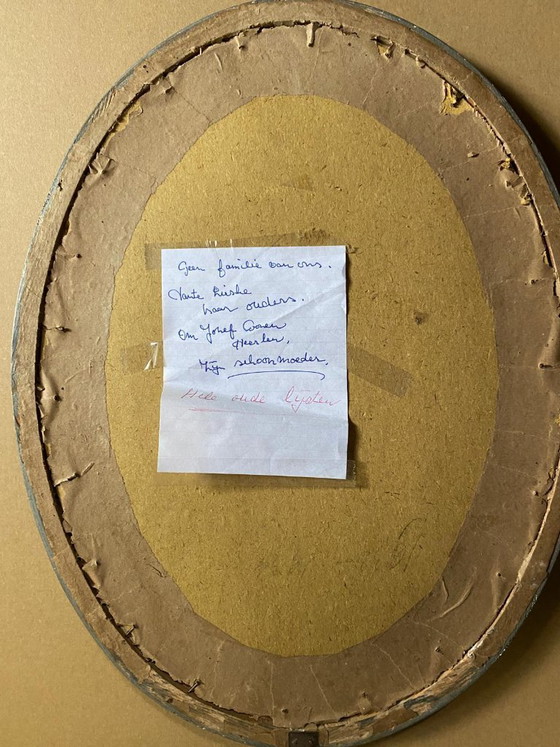 Geen familie van ons.
Tante
haar ouders.
Om Josef Coenen
Heerlen,
Zijn schoonmoeder.
Hele oude lijsten